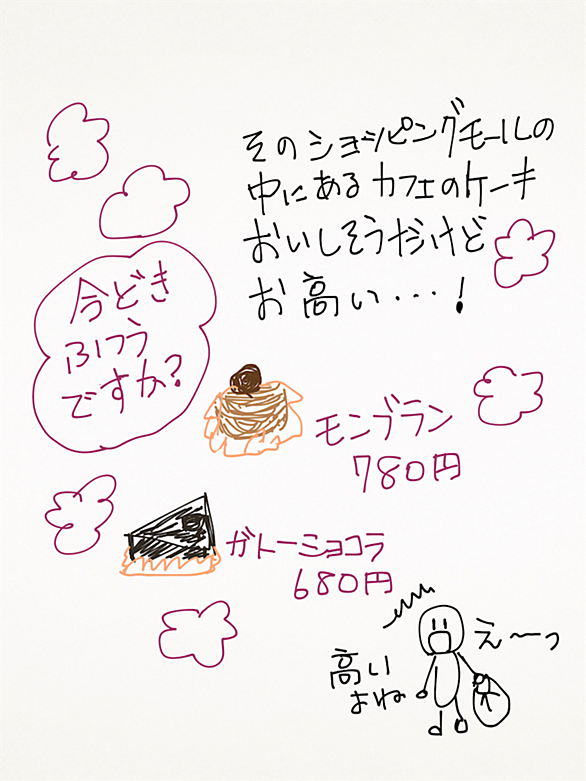 そのショッピングモールの
中にあるカフェのケーキ
おいしそうだけど
お高い・・・!
今どき
ふつう
ですか?
モンブラン
780円
ガトーショコラ
680円
え〜っ
高い
よね